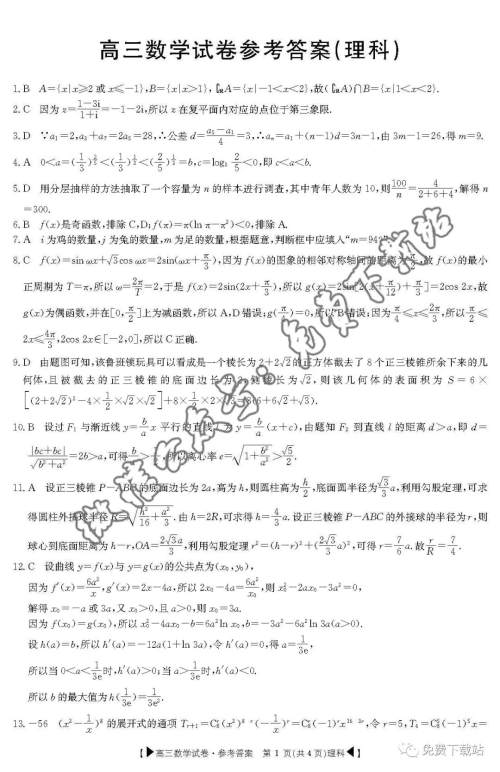 高三数学试卷参考答案(理科)
1. B A={x|x≥2 或 x≤-1},B={x|x>1},∁RA={x|-1<x<2},故(∁RA)∩B={x|1<x<2}.
2. C 因为 z=(1-3i)/(1+i)=-1-2i,所以 z 在复平面内对应的点位于第三象限.
3. D ∵a₁=2,a₃+a₇=2a₅=28,∴公差 d=(a₅-a₁)/4=3,∴aₙ=a₁+(n-1)d=3n-1,由 3m-1=26,得 m=9.
4. A 即 c<a<b.
5. D 用分层抽样的方法抽取了一个容量为 n 的样本进行调查,其中青年人数为 10,则 100/n=4/(2+4+4),解得 n
=300.
6. B f(x)是奇函数,排除 C,D;f(π)=π(ln π-π²)<0,排除 A.
7. A i 为鸡的数量,j 为兔的数量,m 为足的数量,根据题意,判断框中应填入“m=94?”
8. C f(x)=sin ωx+√3cos ωx=2sin(ωx+π/3),因为 f(x)的图象的相邻对称轴间的距离为 故 f(x)的最小
正周期为 T=π,所以 ω=2π/T=2,于是 f(x)=2sin(2x+π/3),所以 g(x)=2sin[2(x+π/12)+π/3]=2cos 2x,故
g(x)为偶函数,并在[0,π/2]上为减函数,所以 A,D 错误;g(π/4)=0,所以 B 错误;因为 π/4≤x≤2π/3,所以 π/2≤
2x≤4π/3,2cos 2x∈[-2,0],所以 C 正确.
9. D 由题图可知,该鲁班锁玩具可以看成是一个棱长为 2+2√2的正方体截去了 8 个正三棱锥所余下来的几
何体,且被截去的正三棱锥的底面边长为 2,侧棱长为√2,则该几何体的表面积为 S=6×
[(2+2√2)²-4×1/2×√2×√2]+8×1/2×2×√3=8(6+6√2+√3).
10. B 设过 F₁ 与渐近线 y=b/a x 平行的直线 l 为 y=b/a(x+c),由题知 F₂ 到直线 l 的距离 d>a,即 d=
|bc+bc|/√(b²+a²)=2b>a,可得 b/a>1/2,所以离心率 e=√(1+b²/a²)>√5/2.
11. A 设正三棱锥 P-ABC 的底面边长为 2a,高为 h,则圆柱高为 h/2,底面圆半径为 √3/3 a,利用勾股定理,可求
得圆柱外接球半径 R=√(h²/16+a²/3).由 h=2R,可求得 h=4/3 a.设正三棱锥 P-ABC 的外接球的半径为 r,则
球心到底面距离为 h-r,OA=2√3/3 a,利用勾股定理 r²=(h-r)²+(2√3/3 a)²,可得 r=7/6 a.故 r/R=7/4.
12. C 设曲线 y=f(x)与 y=g(x)的公共点为(x₀,y₀),
因为 f′(x)=6a²/x,g′(x)=2x-4a,所以 2x₀-4a=6a²/x₀,则 x₀²-2ax₀-3a²=0,
解得 x₀=-a 或 3a,又 x₀>0,且 a>0,则 x₀=3a.
因为 f(x₀)=g(x₀),所以 x₀²-4ax₀-b=6a²ln x₀,b=-3a²-6a²ln 3a(a>0).
设 h(a)=b,所以 h′(a)=-12a(1+ln 3a),令 h′(a)=0,得 a=1/3e,
所以当 0<a<1/3e 时,h′(a)>0;当 a>1/3e 时,h′(a)<0.
所以 b 的最大值为 h(1/3e)=1/3e².
13. -56 (x²-1/x)⁸ 的展开式的通项
【▶高三数学试卷·参考答案 第 1 页(共 4 页)理科◀】
免费下载站